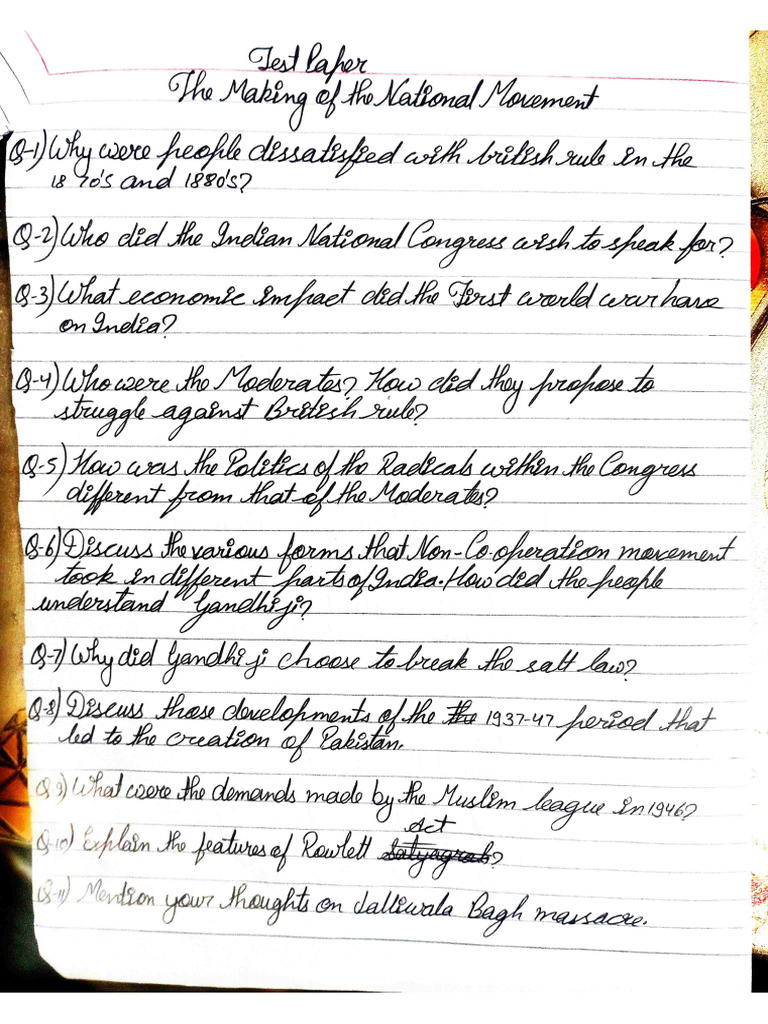 Test Paper
The Making of the National Movement
Q-1) Why were people dissatisfied with british rule in the
1870's and 1880's?
Q-2) Who did the Indian National Congress wish to speak for?
Q-3) What economic impact did the First world war have
on India?
Q-4) Who were the Moderates? How did they propose to
struggle against British rule?
Q-5) How was the Politics of the Radicals within the Congress
different from that of the Moderates?
Q-6) Discuss the various forms that Non-Co-operation movement
took in different parts of India. How did the people
understand Gandhiji?
Q-7) Why did Gandhiji choose to break the salt law?
Q-8) Discuss those developments of the the 1937-47 period that
led to the creation of Pakistan.
Q-9) What were the demands made by the Muslim league in 1946?
Act
Q-10) Explain the features of Rowlett Satyagrah?
Q-11) Mention your thoughts on Jalliwala Bagh massacre.